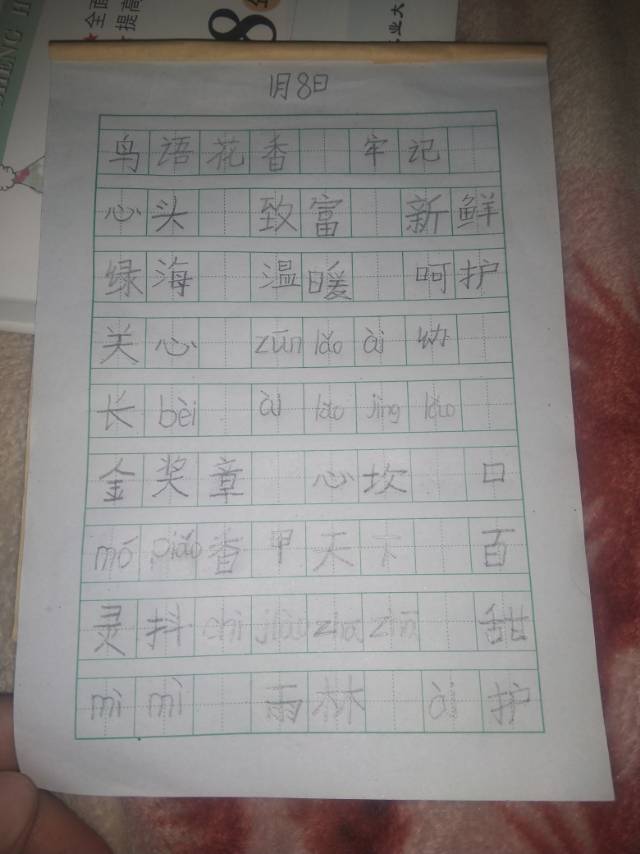 SHENG
全面
提高
8
业大
1月8日
鸟语花香 牢记
心头 致富 新鲜
绿海 温暖 呵护
关心 zūn lǎo ài 幼
长 bèi ài lǎo jìng lǎo
金奖章 心坎 口
mó piáo 香甲天下 百
灵抖 chì jiào zhā zhā 甜
mì mì 雨林 ài 护